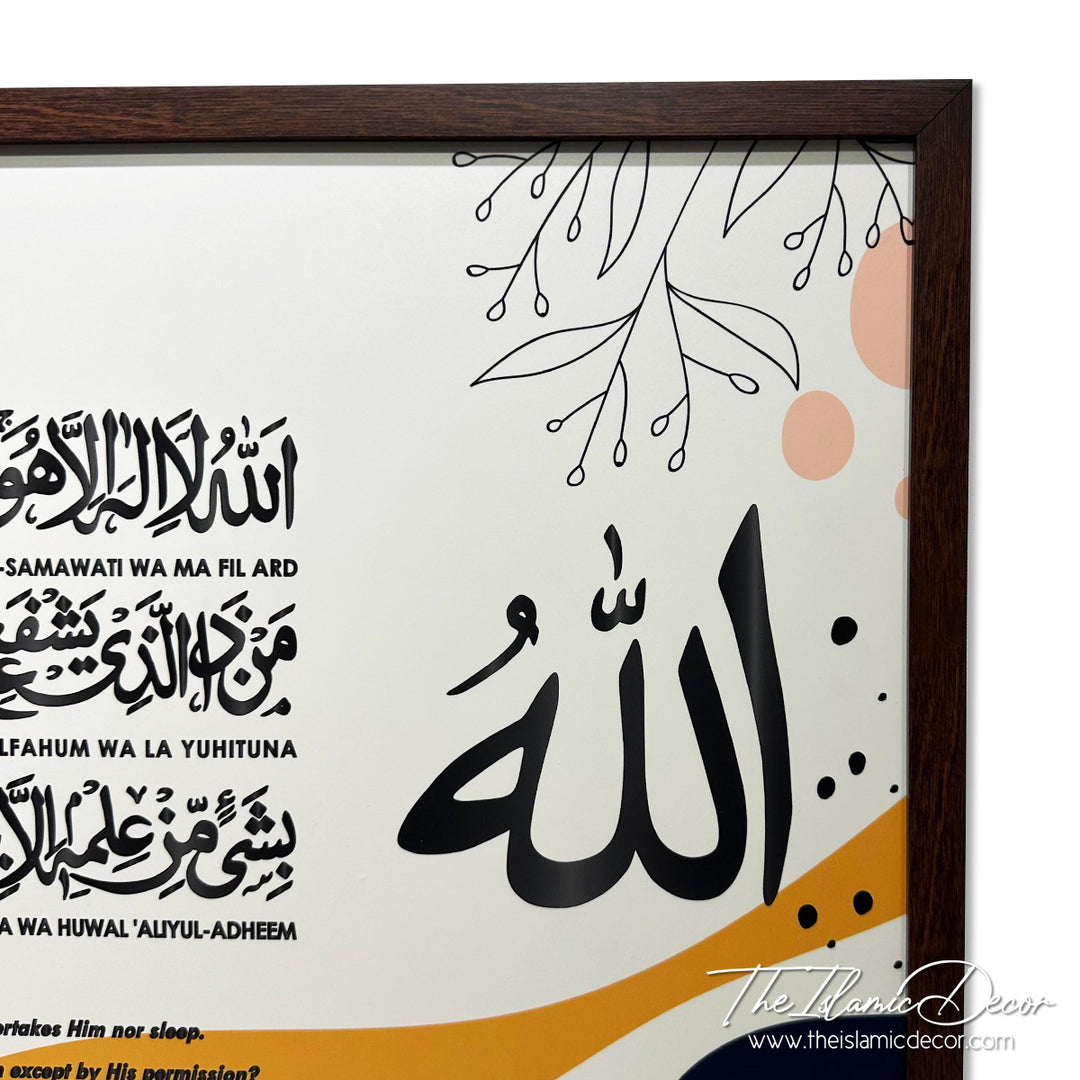 اَللّٰهُ لَا اِلٰهَ اِلَّا هُوَ
-SAMAWATI WA MA FIL ARD
مَنْ ذَا الَّذِيْ يَشْفَعُ
LFAHUM WA LA YUHITUNA
بِشَيْءٍ مِّنْ عِلْمِهٖ اِلَّا
A WA HUWAL 'ALIYUL-ADHEEM
ertakes Him nor sleep.
except by His permission?
اللّٰهُ
The Islamic Decor
www.theislamicdecor.com